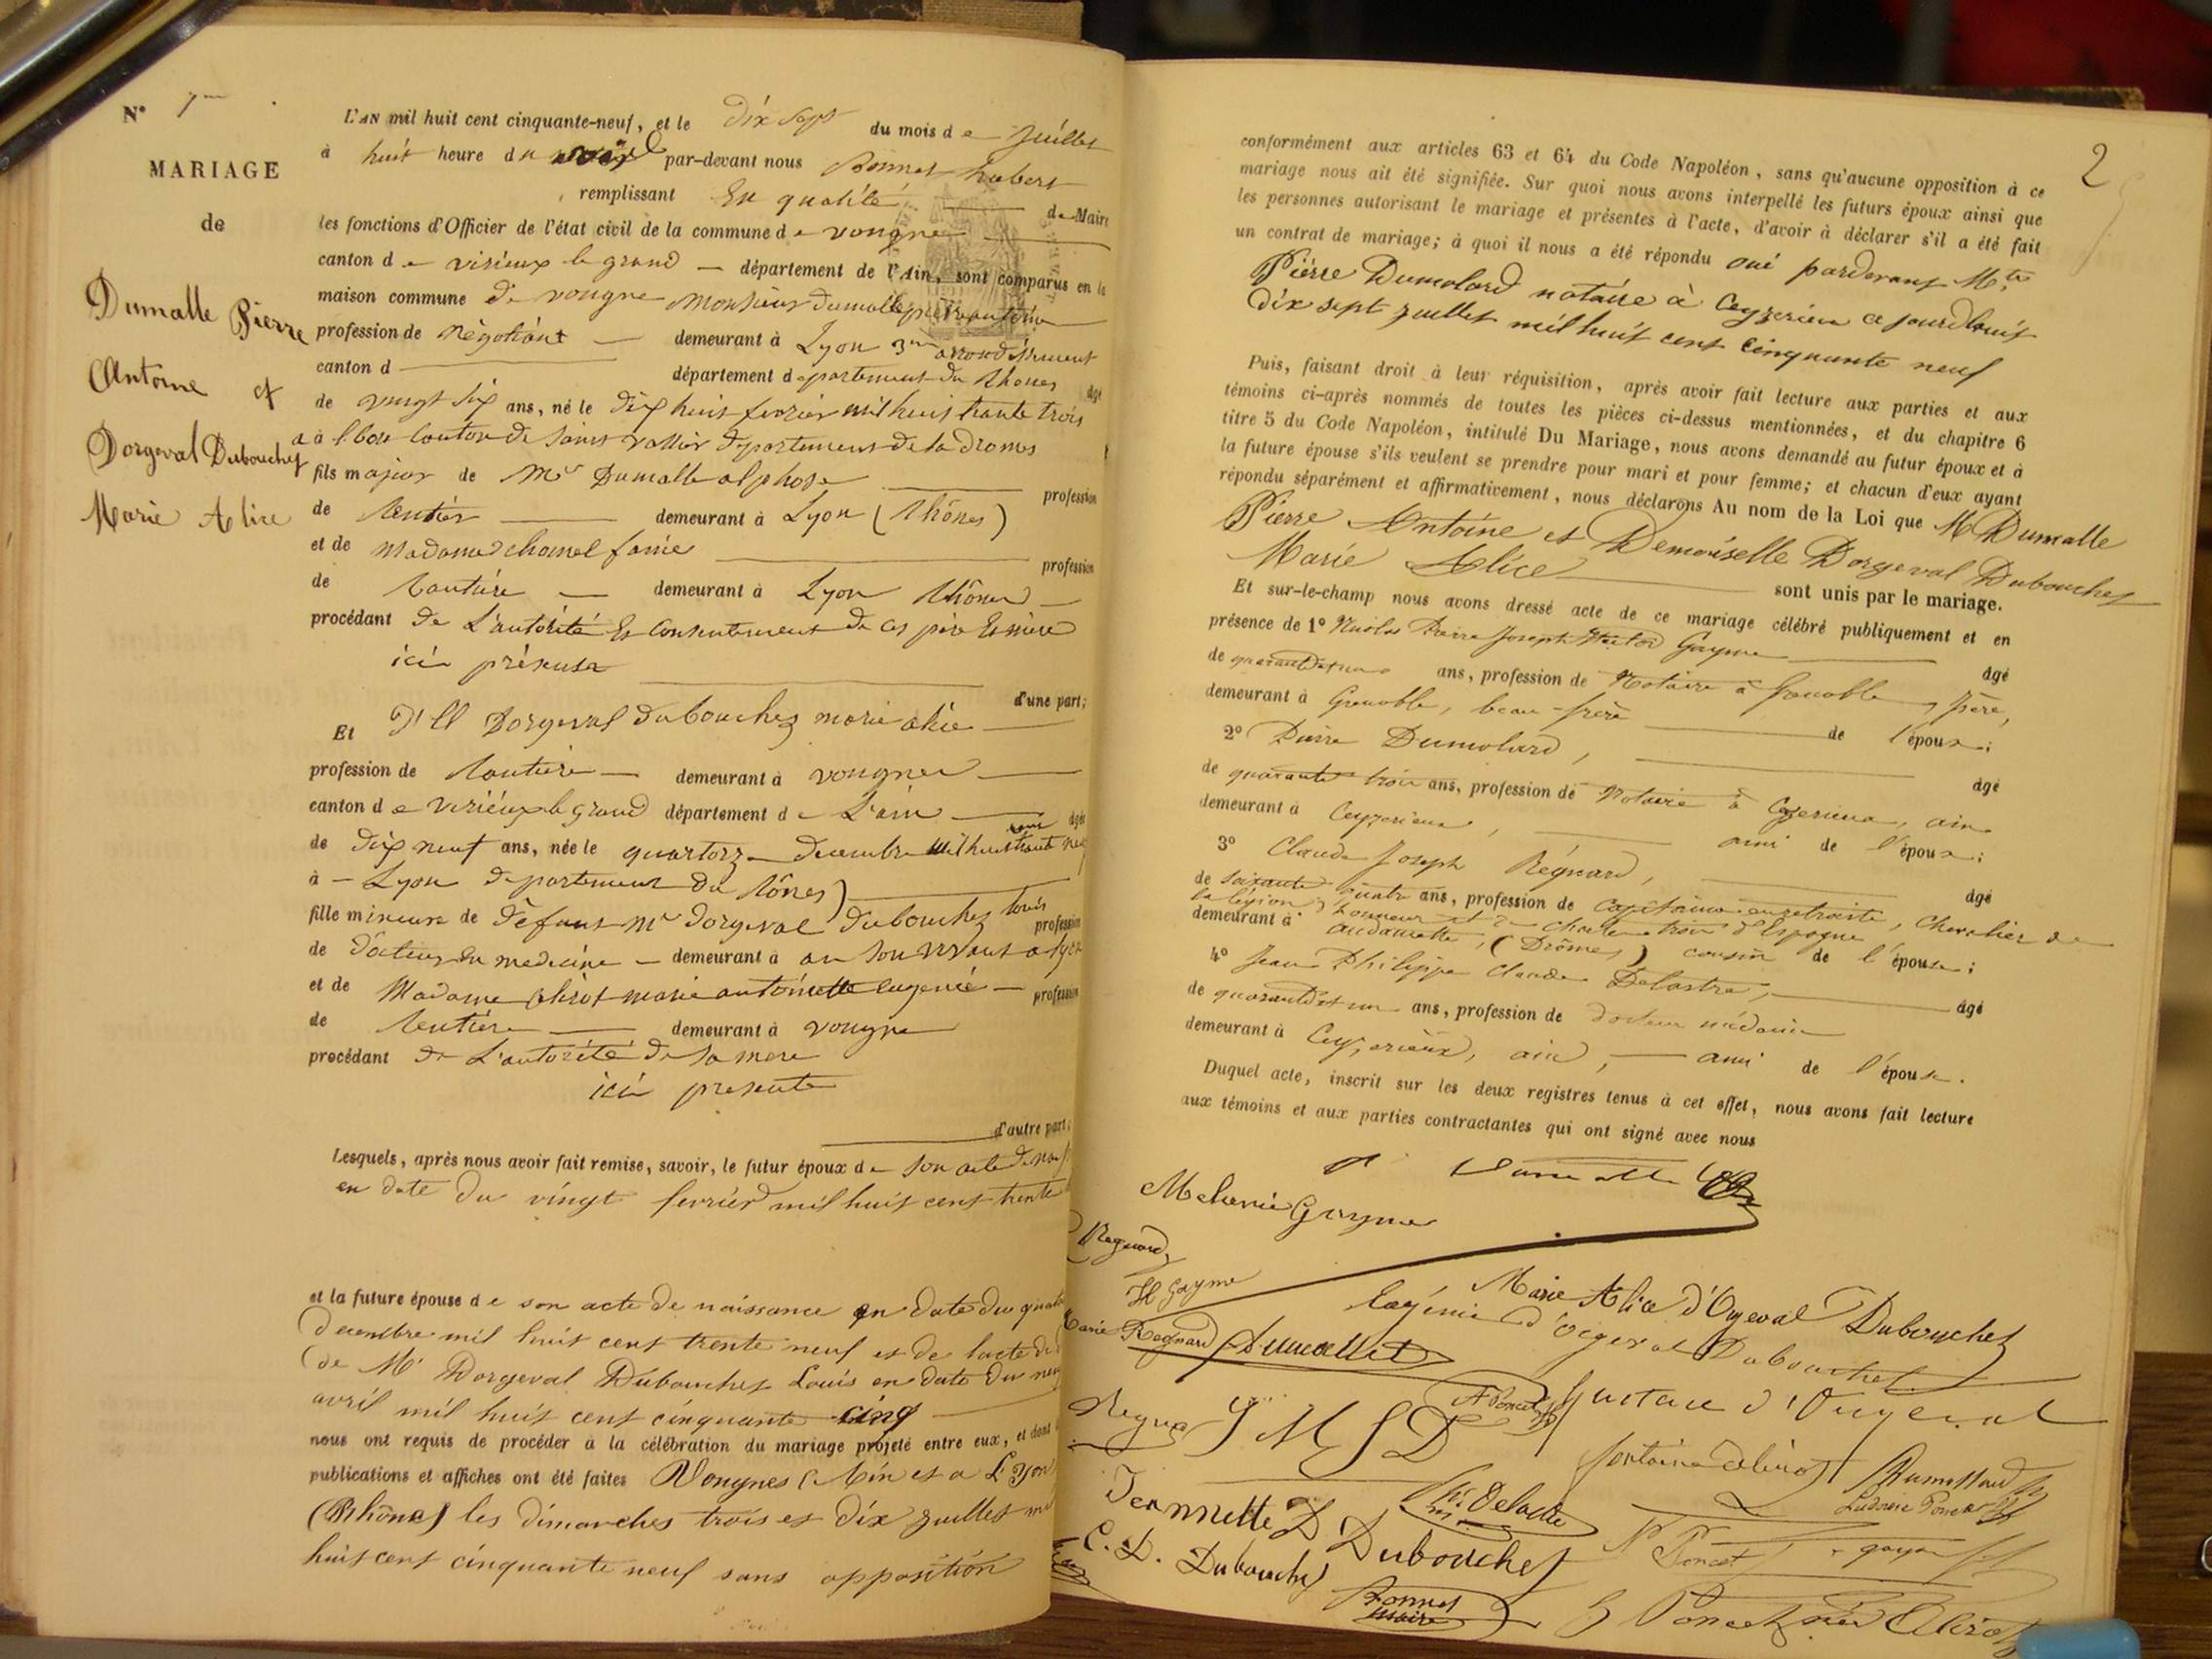 N° 1
MARIAGE
de
Dumalle Pierre
Antoine et
Dorgeval Dubouchet
Marie Alice
L'AN mil huit cent cinquante-neuf, et le dix sept du mois de juillet
à huit heure du par-devant nous Bonnet hubert
remplissant En qualité de Maire
les fonctions d'Officier de l'état civil de la commune de vongne
canton de virieux le grand — département de l'Ain, sont comparus en la
maison commune de vongne monsieur dumalle pierre antoine
profession de négotiant — demeurant à Lyon 3me arrondissement
canton d département departement du Rhones âgé
de vingt six ans, né le dix huit fevrier mil huit trante trois
a à canton de saint vallier departement de la Dromes
fils majeur de Mr Dumalle alphose profession
de Rentier demeurant à Lyon (Rhônes)
et de Madame chomel fanie profession
de Rantière — demeurant à Lyon Rhônes —
procédant de L'autorité Et Consentement de ces père Et mère
ici présens
d'une part;
Et Dlle Dorgeval dubouchez marie alice —
profession de Rantière — demeurant à vongnes —
canton de virieux le grand département de L'ain — âgée
de dix neuf ans, née le quartorze decembre mil huit trante neuf
à — Lyon departement du Rônes)
fille mineure de défunt Mr dorgeval dubouchez louis profession
de docteur en medecine — demeurant à an son vivant a lyon
et de Madame Clérot marie antoinette eugenie — profession
de Rentière — demeurant à vongne
procédant de L'autorité de sa mere
ici presente
d'autre part;
Lesquels, après nous avoir fait remise, savoir, le futur époux de son acte de
en date du vingt fevrier mil huit cent trente
et la future épouse de son acte de naissance en date du
decembre mil huit cent trente neuf et de lacte de
de Mr Dorgeval Dubouchet Louis en date du
avril mil huit cent cinquante cinq
nous ont requis de procéder à la célébration du mariage projeté entre eux, et dont
publications et affiches ont été faites Vongnes (Ain et a Lyon
(Rhône) les dimanches trois et dix juillet mil
huit cent cinquante neuf sans opposition
2
conformément aux articles 63 et 64 du Code Napoléon, sans qu'aucune opposition à ce
mariage nous ait été signifiée. Sur quoi nous avons interpellé les futurs époux ainsi que
les personnes autorisant le mariage et présentes à l'acte, d'avoir à déclarer s'il a été fait
un contrat de mariage; à quoi il nous a été répondu oui pardevant Mtre
Pierre Dumolard notaire à Ceyzerieu ce jourdhuit
dix sept juillet mil huit cent cinquante neuf
Puis, faisant droit à leur réquisition, après avoir fait lecture aux parties et aux
témoins ci-après nommés de toutes les pièces ci-dessus mentionnées, et du chapitre 6
titre 5 du Code Napoléon, intitulé Du Mariage, nous avons demandé au futur époux et à
la future épouse s'ils veulent se prendre pour mari et pour femme; et chacun d'eux ayant
répondu séparément et affirmativement, nous déclarons Au nom de la Loi que Mr Dumalle
Pierre Antoine et Demoiselle Dorgeval Dubouchet
Marie Alice sont unis par le mariage.
Et sur-le-champ nous avons dressé acte de ce mariage célébré publiquement et en
présence de 1° Nicolas Pierre Joseph Gayme âgé
de ans, profession de Notaire à Grenoble, Isère,
demeurant à Grenoble, beau-frère de l'épouse;
2° Pierre Dumolard, âgé
de quarante trois ans, profession de Notaire à Ceyzerieu, ain
demeurant à Ceyzerieu, ami de l'épouse;
3° Claude Joseph Régnard, âgé
de soixante quatre ans, profession de Capitaine en retraite, chevalier de
la légion d'honneur et de charles trois d'Espagne
demeurant à andancette, (Drôme) cousin de l'épouse;
4° Jean Philippe Claude Delastre, âgé
de quarante et un ans, profession de docteur médecin
demeurant à Ceyzerieux, ain, — ami de l'épouse.
Duquel acte, inscrit sur les deux registres tenus à cet effet, nous avons fait lecture
aux témoins et aux parties contractantes qui ont signé avec nous
Melanie Gayme
Regnard
H Gayme
Marie Alice d'Orgeval Dubouchet
Eugénie d'Orgeval Dubouchet
Marie Regnard Dumallet
A Poncet Gustave d'Orgeval
Jeannette D Dubouchet
C. D. Dubouchet
Bonnet
maire
Poncet née Clérot